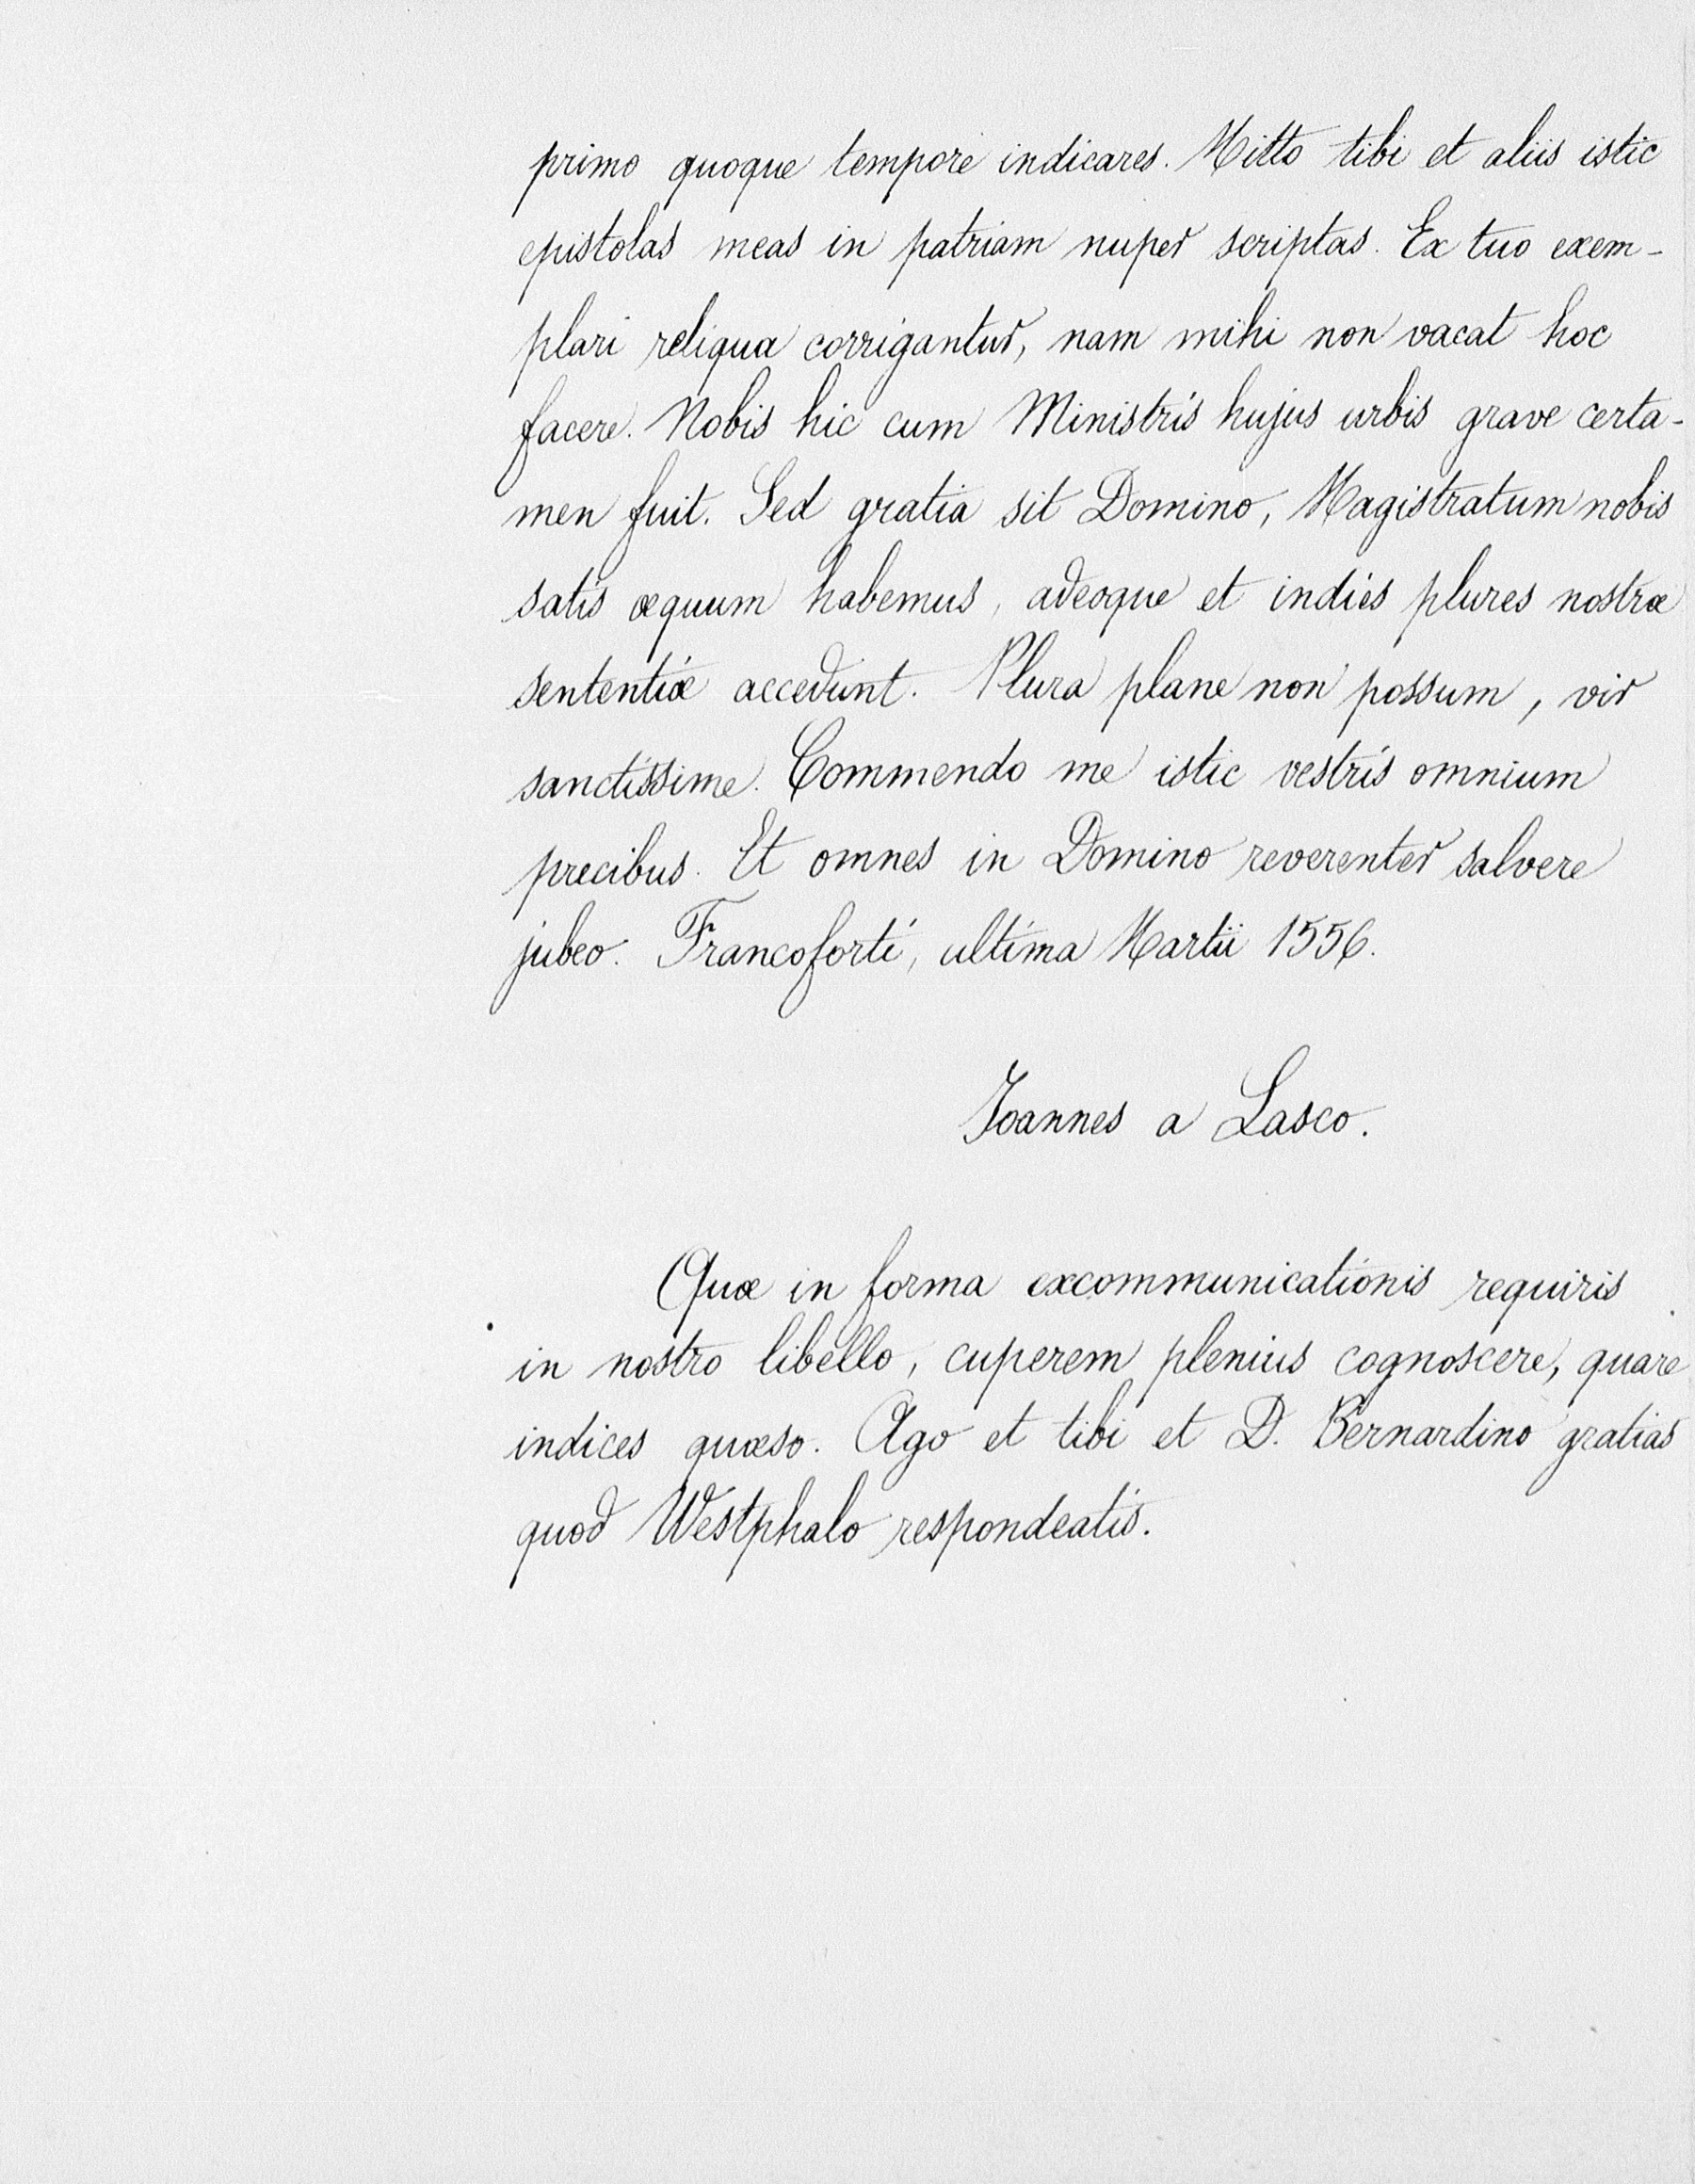 primo quoque tempore indicares. Mitto tibi et aliis istic
epistolas meas in patriam nuper scriptas. Ex tuo exem-
plari reliqua corrigantur, nam mihi non vacat hoc
facere. Nobis hic cum Ministris hujus urbis grave certa-
men fuit. Sed gratia sit Domino, Magistratum nobis
satis æquum habemus, adeoque et indies plures nostræ
sententiæ accedunt. Plura plane non possum, vir
sanctissime. Commendo me istic vestris omnium
precibus. Et omnes in Domino reverenter salvere
jubeo. Francoforti, ultima Martii 1556.
Joannes a Lasco.
Quæ in forma excommunicationis requiris
in nostro libello, cuperem plenius cognoscere, quare
indices quæso. Ago et tibi et D. Bernardino gratias
quod Westphalo respondeatis.